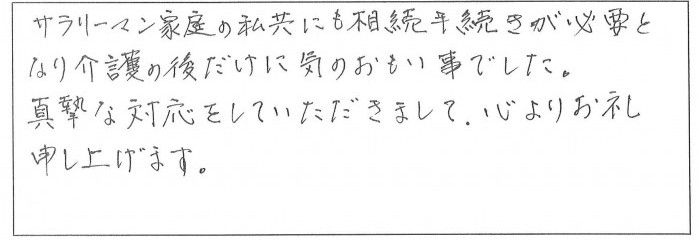 サラリーマン家庭の私共にも相続手続きが必要と
なり介護の後だけに気のおもい事でした。
真摯な対応をしていただきまして、心よりお礼
申し上げます。